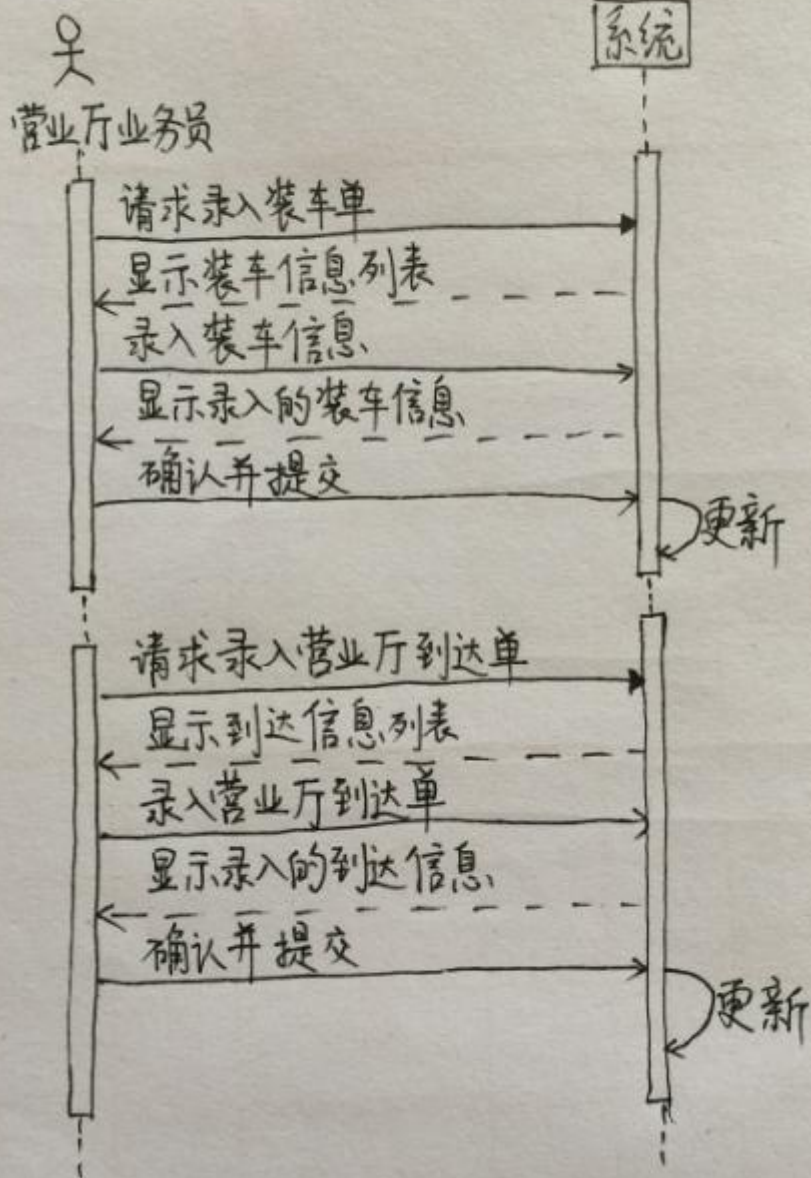 系统
营业厅业务员
请求录入装车单
显示装车信息列表
录入装车信息
显示录入的装车信息
确认并提交
更新
请求录入营业厅到达单
显示到达信息列表
录入营业厅到达单
显示录入的到达信息
确认并提交
更新